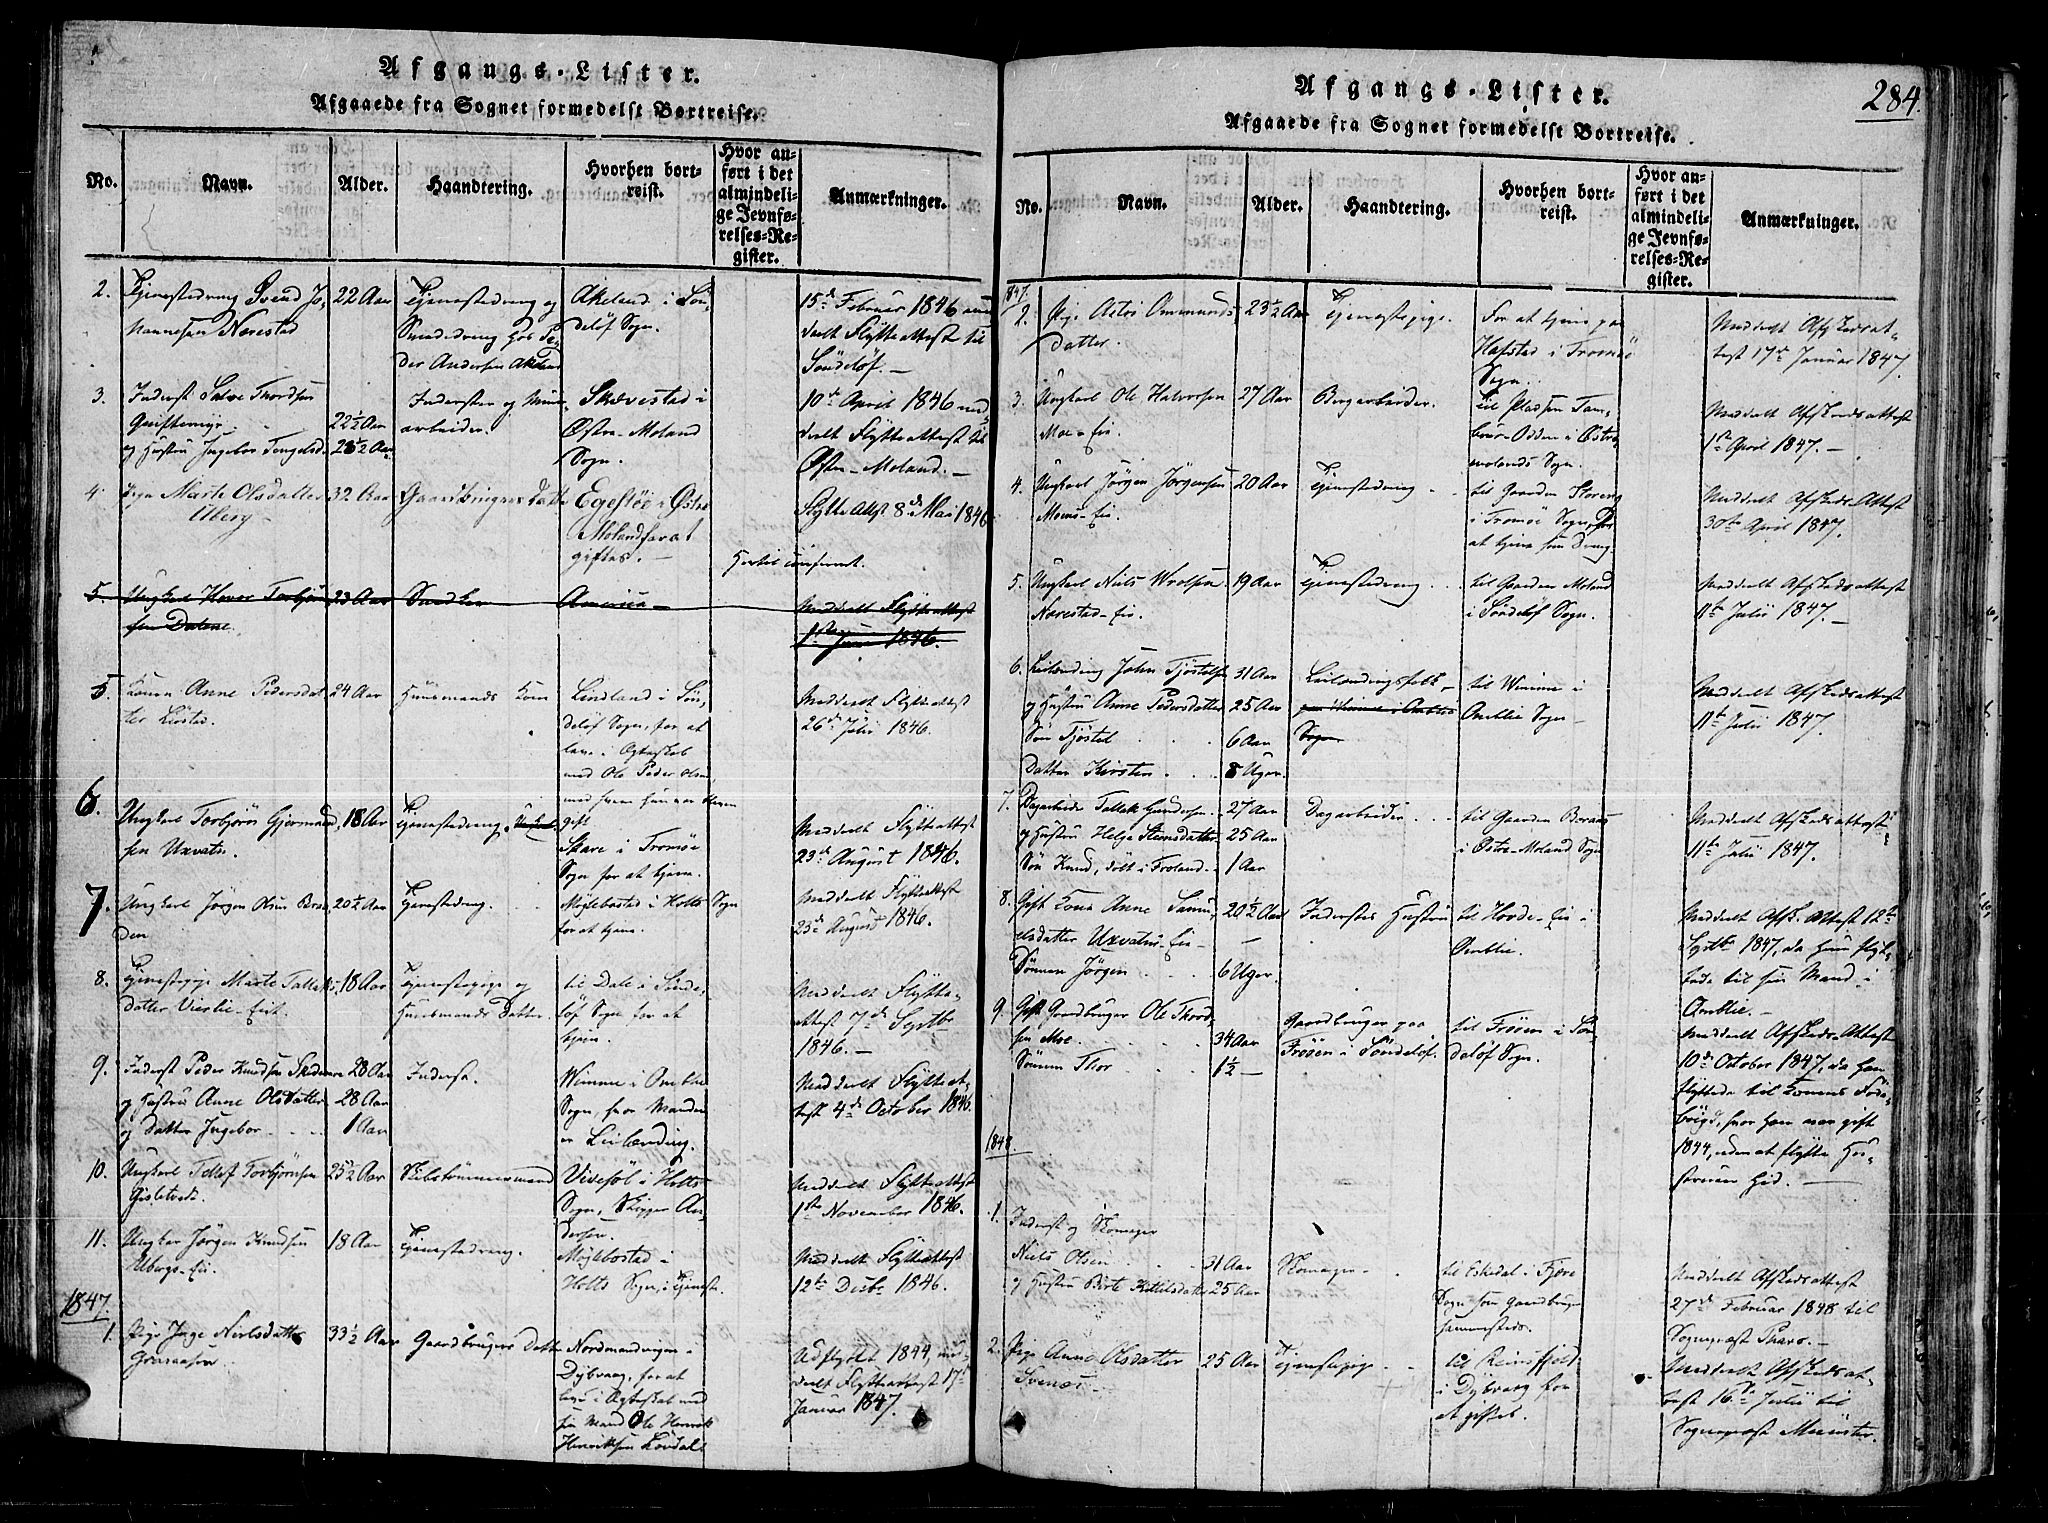 Afgangs-Lister.
Afgaaede fra Sognet formedelst Bortreise.
No. Navn. Alder. Haandtering. Hvorhen bortreist. Hvor anført i det almindelige Jevnførelses-Register. Anmærkninger.
2. Tjenestedreng Svend Johannesen Narestad 22 Aar Tjenestedreng og Smededreng hos Peder Andersen Akeland Akeland i Søndeløf Sogn. 15de Februar 1846 meddeelt Flytteattest til Søndeløf.
3. Inderst Salve Thordsen 22½ Aar og Hustru Ingebor Tengelsd. 23½ Aar Inderster og arbeider. Skævestad i Østre-Moland Sogn. 10de April 1846 meddeelt Flytteattest til Østre-Moland.
4. Pige Marte Olsdatter Ulberg 32 Aar Gaardbrugers Datter Egestøe i Østre Moland for at giftes. Flytte Attest 8de Mai 1846
Hertil confirmeret.
5. Ungkarl Torbjørnsen Dalene 23 Aar Snedker America Meddeelt Flytteattest 1ste Juni 1846.
5 Konen Anne Pedersdatter 24 Aar Huusmands Kone Lindland i Søndeløf Sogn, for at leve i Egteskab med Ole Peder Olsen med hvem hun er bleven gift Meddeelt Flytteattest 26de Julii 1846.
6. Ungkarl Torbjørn Gjermundsen Uxvatn. 18 Aar Tjenestedreng. Skare i Tromøe Sogn for at tjene. Meddeelt Flytteattest 23de August 1846.
7. Ungkarl Jørgen Olsen Braaden 20½ Aar Tjenestedreng. Mÿlebostad i Holts Sogn for at tjene. Meddeelt Flytteattest 23de August 1846.
8. Tjenestepige Marte Tallaksdatter Vierlie-Eiet. 18 Aar Tjenestepige og Huusmands Datter. til Dale i Søndeløf Sogn for at tjene. Meddeelt Flytteattest 7de Septbr 1846.
9. Inderst Peder Knudsen 28 Aar og Hustru Anne Olsdatter 28 Aar og Datter Ingebor 1 Aar Inderst. Wimme i Amblie Sogn, hvor Manden er Leilænding. Meddeelt Flytteattest 4de October 1846.
10. Ungkarl Tellef Torbjørnsen 25½ Aar Skibstømmermand Vivestøl i Holts Sogn, Skipper Andersen. Meddeelt Flytteattest 1ste November 1846.
11. Ungkar Jørgen Knudsen Ulbergs-Eie. 18 Aar Tjenestedreng. Mÿlebostad i Holts Sogn, i Tjeneste. Meddeelt Flytteattest 12te Decbr 1846.
1847.
1. Pige Inge Nielsdatter 33½ Aar Gaardbrugers Datter Nordmandvigen i Dybvaag, for at leve i Egteskab med sin Mand Ole Henrik Henriksen Løvdal. Udflyttet 1844, meddeelt Flytteattest 17de Januar 1847.
284.
Afgangs-Lister.
Afgaaede fra Sognet formedelst Bortreise.
No. Navn. Alder. Haandtering. Hvorhen bortreist. Hvor anført i det almindelige Jevnførelses-Register. Anmærkninger.
1847.
2. Pige Omundsdatter. 23½ Aar Tjenestepige. For at tjene paa Hafstad i Tromøe Sogn. Meddeelt Afskedsattest 17de Januar 1847.
3. Ungkarl Ole Halvorsen Moe-Eie. 27 Aar Bergarbeider. til Pladsen Tambour-Odden i Østremolands Sogn. Meddeelt Afskedsattest 1ste April 1847.
4. Ungkarl Jørgen Jørgensen Moens-Eie. 20 Aar Tjenestedreng til Gaarden Storeng i Tromøe Sogn, for at tjene som Dreng. Meddeelt AfskedsAttest 30te April 1847.
5. Ungkarl Niels Wrolsen Narestad-Eie. 19 Aar Tjenestedreng til Gaarden Moland i Søndeløf Sogn. Meddeelt Afskedsattest 11te Julii 1847.
6. Leilænding John Tjøstelsen 31 Aar og Hustru Anne Pedersdatter 25 Aar Søn Tjøstel 6 Aar Datter Kirsten 8 Uger. Leilændingsfolk paa Wimme i Amblie Sogn til Wimme i Amblie Sogn Meddeelt Afskedsattest 11te Julii 1847.
7. Dagarbeider Tallak Gundersen 27 Aar og Hustru Helge Steensdatter 25 Aar Søn Knud, døbt i Froland. 1 Aar Dagarbeider til Gaarden Braaen i Østre-Moland Sogn Meddeelt Afskedsattest 11te Julii 1847.
8. Gift Kone Anne Samuelsdatter Uxvatns-Eie 20½ Aar Sønnen Jørgen 6 Uger. Inderstes Hustru til Hovde-Eie i Amblie. Meddeelt Afsk. Attest 12te Septbr 1847, da hun flyttede til sin Mand i Amblie.
9. Gift Gaardbruger Ole Thordsen Moe 34 Aar Sønnen Thor 1½ Gaardbruger paa Frøsen i Søndeløf. til Frøsen i Søndeløf Sogn. Meddeelt Afskeds-Attest 10de October 1847, da han flyttede til Konens Fødebøigd, hvor han var gift 1844, uden at flytte Hustruen hid.
1848.
1. Inderst og Skomager Niels Olsen 31 Aar og Hustru Birte Kittilsdatter 25 Aar Skomager til Eskedal i Fjære Sogn som Gaardbruger sammesteds. Meddeelt Afskedsattest 27de Februar 1848 til Sognepræst
2. Pige Anne Olsdatter Svenes 25 Aar Tjenestepige til Reinsfjeld i Dÿbvaag for at giftes. Meddeelt Afskedsattest 16de Julii til Sognepræst Münster.